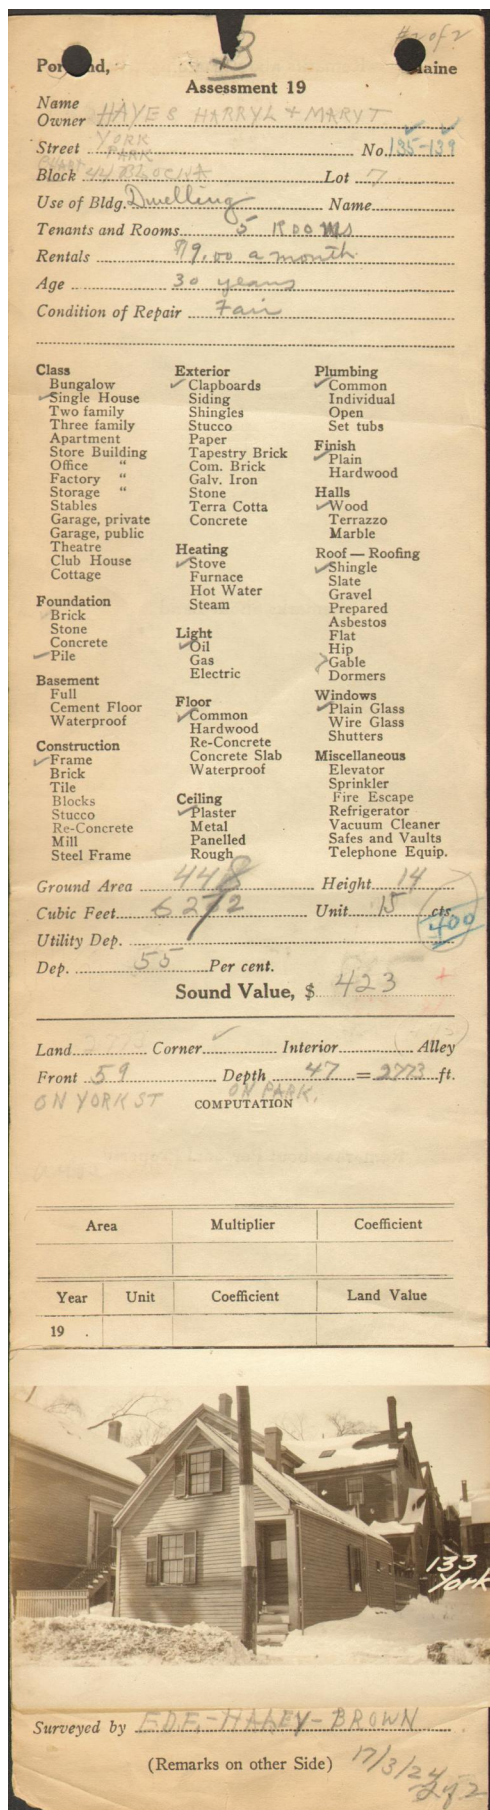 #2 of 2
B
Portland, Maine
Assessment 19
Name
Owner HAYES HARRY L + MARY T
YORK
Street PARK No. 135-139
Block 44 BLOCK A Lot 7
Use of Bldg. Dwelling Name
Tenants and Rooms 5 ROOMS
Rentals 9.00 a month
Age 30 years
Condition of Repair Fair
Class
Bungalow
Single House
Two family
Three family
Apartment
Store Building
Office "
Factory "
Storage "
Stables
Garage, private
Garage, public
Theatre
Club House
Cottage
Foundation
Brick
Stone
Concrete
Pile
Basement
Full
Cement Floor
Waterproof
Construction
Frame
Brick
Tile
Blocks
Stucco
Re-Concrete
Mill
Steel Frame
Exterior
Clapboards
Siding
Shingles
Stucco
Paper
Tapestry Brick
Com. Brick
Galv. Iron
Stone
Terra Cotta
Concrete
Heating
Stove
Furnace
Hot Water
Steam
Light
Oil
Gas
Electric
Floor
Common
Hardwood
Re-Concrete
Concrete Slab
Waterproof
Ceiling
Plaster
Metal
Panelled
Rough
Plumbing
Common
Individual
Open
Set tubs
Finish
Plain
Hardwood
Halls
Wood
Terrazzo
Marble
Roof — Roofing
Shingle
Slate
Gravel
Prepared
Asbestos
Flat
Hip
Gable
Dormers
Windows
Plain Glass
Wire Glass
Shutters
Miscellaneous
Elevator
Sprinkler
Fire Escape
Refrigerator
Vacuum Cleaner
Safes and Vaults
Telephone Equip.
Ground Area 448 Height 14
Cubic Feet 6272 Unit 15 cts.
400
Utility Dep.
Dep. 55 Per cent.
Sound Value, $ 423
Land Corner Interior Alley
Front 59 Depth 47 = 2773 ft.
ON YORK ST ON PARK.
COMPUTATION
Area Multiplier Coefficient
Year Unit Coefficient Land Value
19 .
1
133
York
Surveyed by E.D.F. - HALEY - BROWN
(Remarks on other Side)
17/3/24
2 of 2